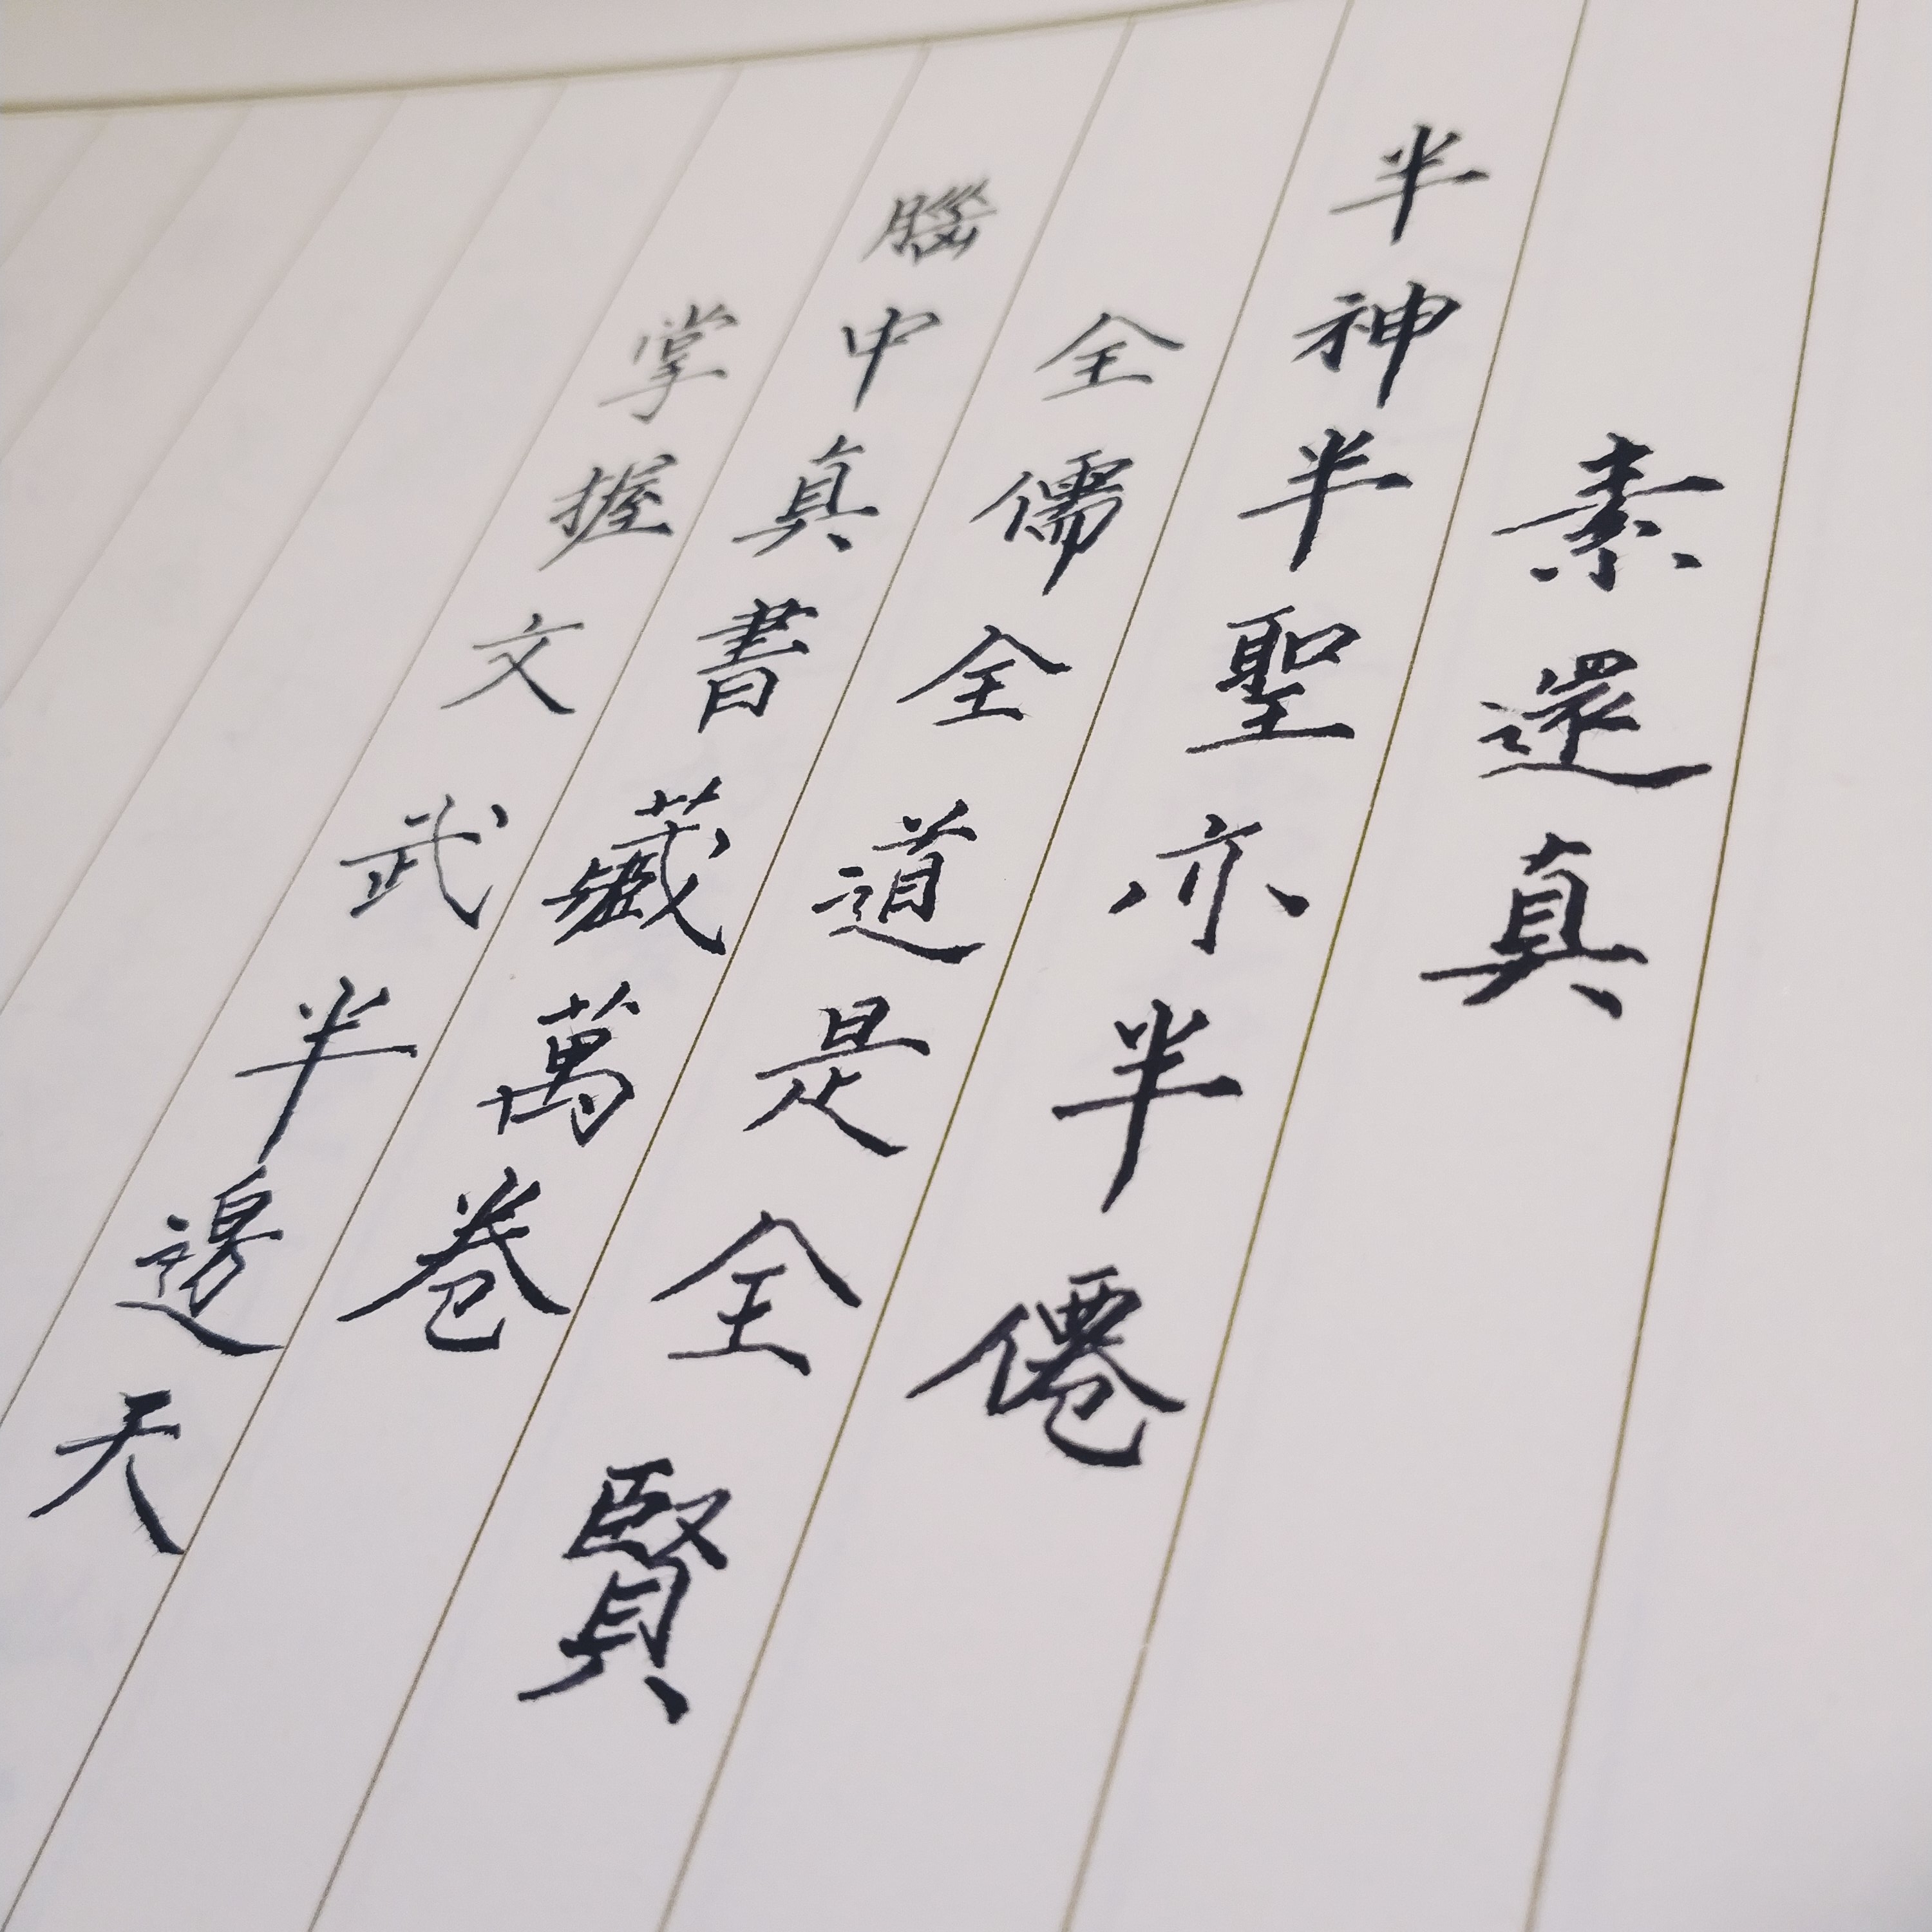 素還真
半神半聖亦半僊
全儒全道是全賢
腦中真書藏萬卷
掌握文武半邊天